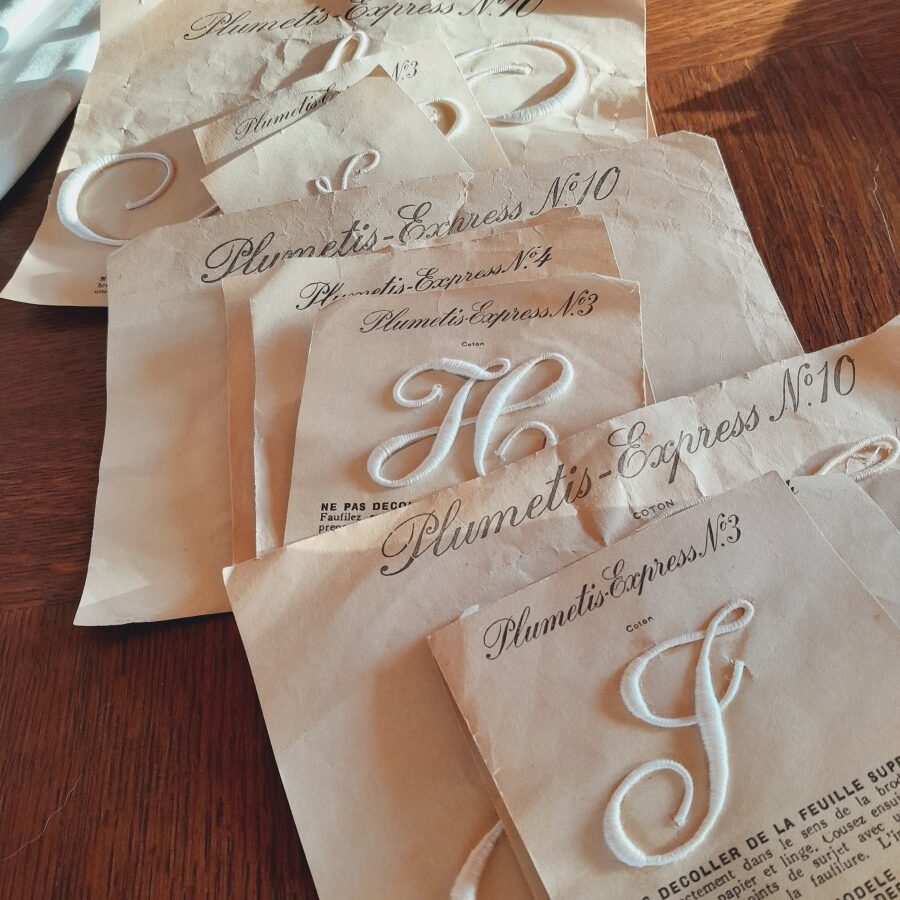 Plumetis-Express Nº10
Nº3
Plumetis-Ex
Plumetis-Express Nº10
Plumetis-Express Nº4
Plumetis-Express Nº3
Coton
H
NE PAS DECO
Faufilez
Plumetis-Express Nº10
COTON
Plumetis-Express Nº3
Coton
DECOLLER DE LA FEUILLE SUP
dans le sens de la
papier et linge. Cousez
points de surjet avec
la faufilure. L'i